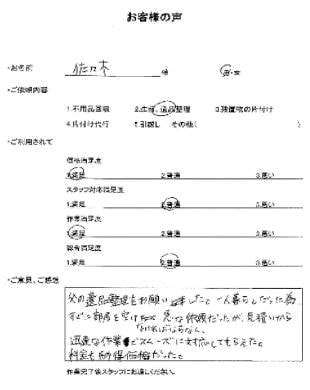 お客様の声
・お名前 佐々木 様 男・女
・ご依頼内容
1.不用品回収 2.生前、遺品整理 3.残置物の片付け
4.片付け代行 5.引越し その他( )
・ご利用されて
価格満足度
1.満足 2.普通 3.悪い
スタッフ対応満足度
1.満足 2.普通 3.悪い
作業満足度
1.満足 2.普通 3.悪い
総合満足度
1.満足 2.普通 3.悪い
・ご意見、ご感想
父の遺品整理をお願いしました。一人暮らしだった為
すぐに部屋を空け 急な依頼だったが、見積りから
なければならなく、
迅速な作業でスムーズに対応してもらえた。
料金も納得価格だった。
作業完了後スタッフにお渡しください。